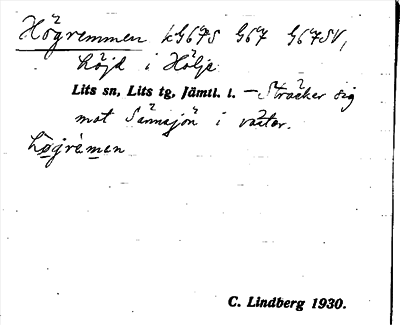 Högremmen kG67S G67 G67SV,
höjd i Hölje
Lits sn, Lits tg, Jämtl. l. — Sträcker sig
mot Sännsjön i väster.
högrèmen
C. Lindberg 1930.